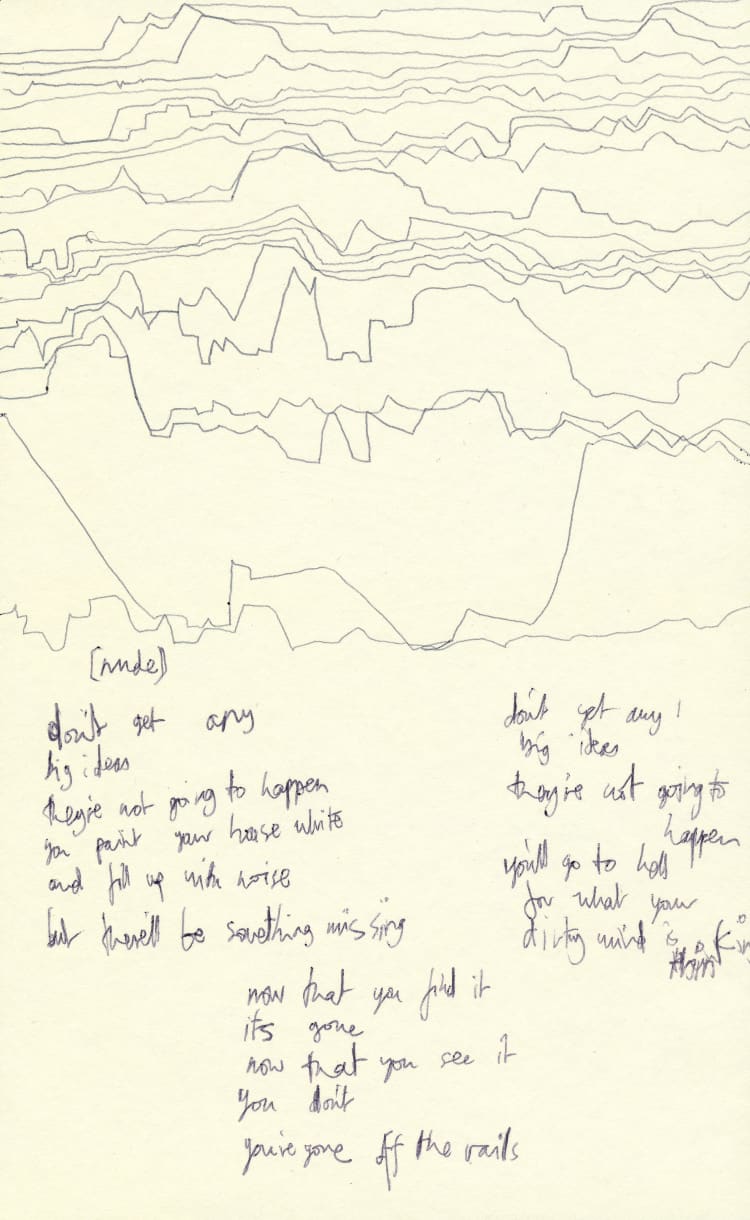 (nude)
don't get any
big ideas
they're not going to happen
you paint your house white
and fill up with noise
but there'll be something missing
don't get any
big ideas
they're not going to
happen
you'll go to hell
for what your
dirty mind is
thinking
now that you find it
it's gone
now that you see it
you don't
you've gone off the rails